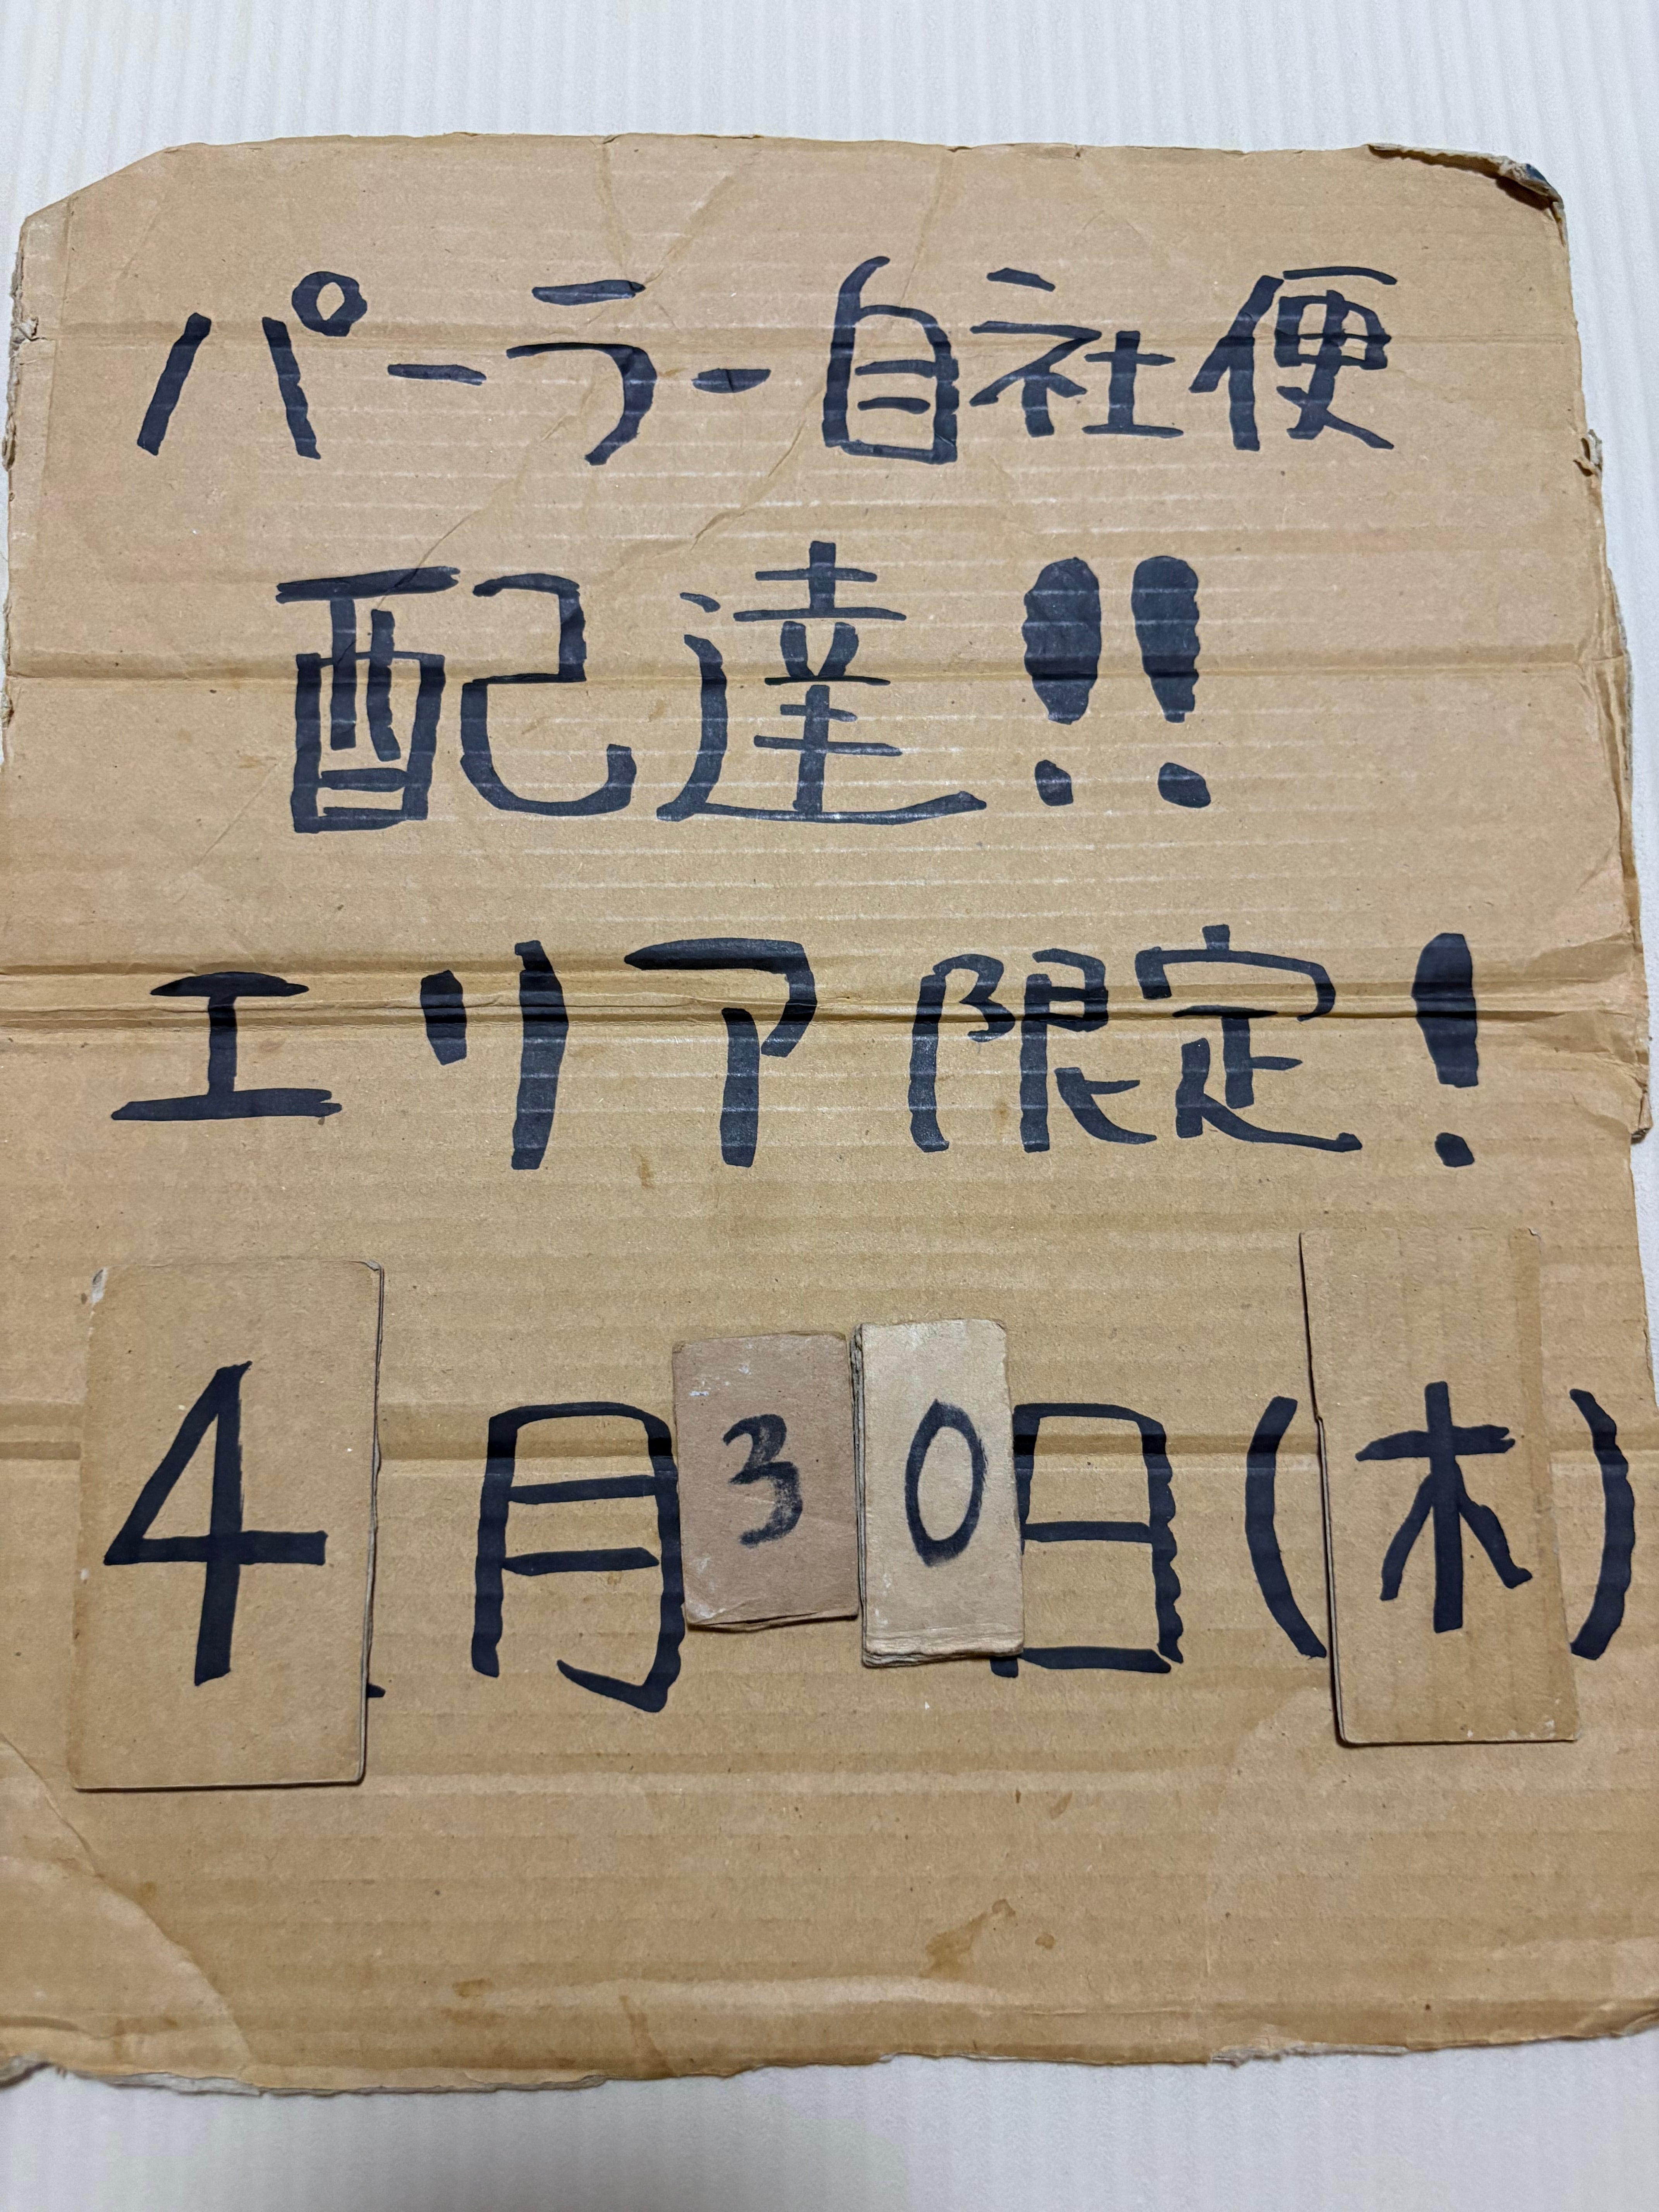 パーラー自社便
配達!!
エリア限定!
4月30日(木)